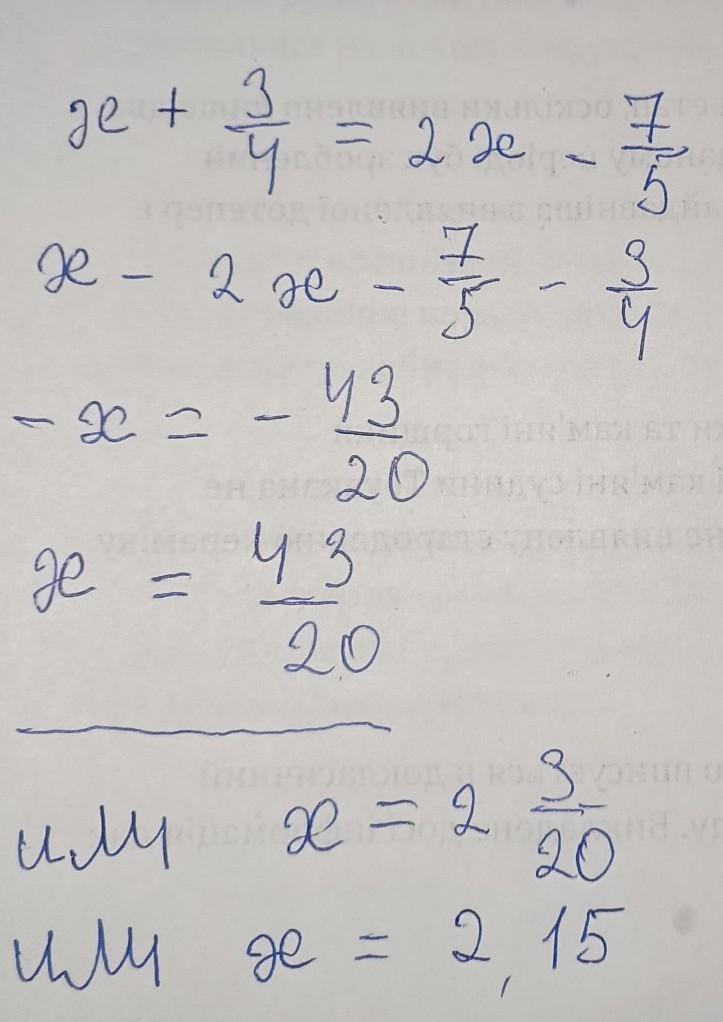 x + 3/4 = 2x - 7/5
x - 2x - 7/5 - 3/4
- x = - 43/20
x = 43/20
или x = 2 3/20
или x = 2,15